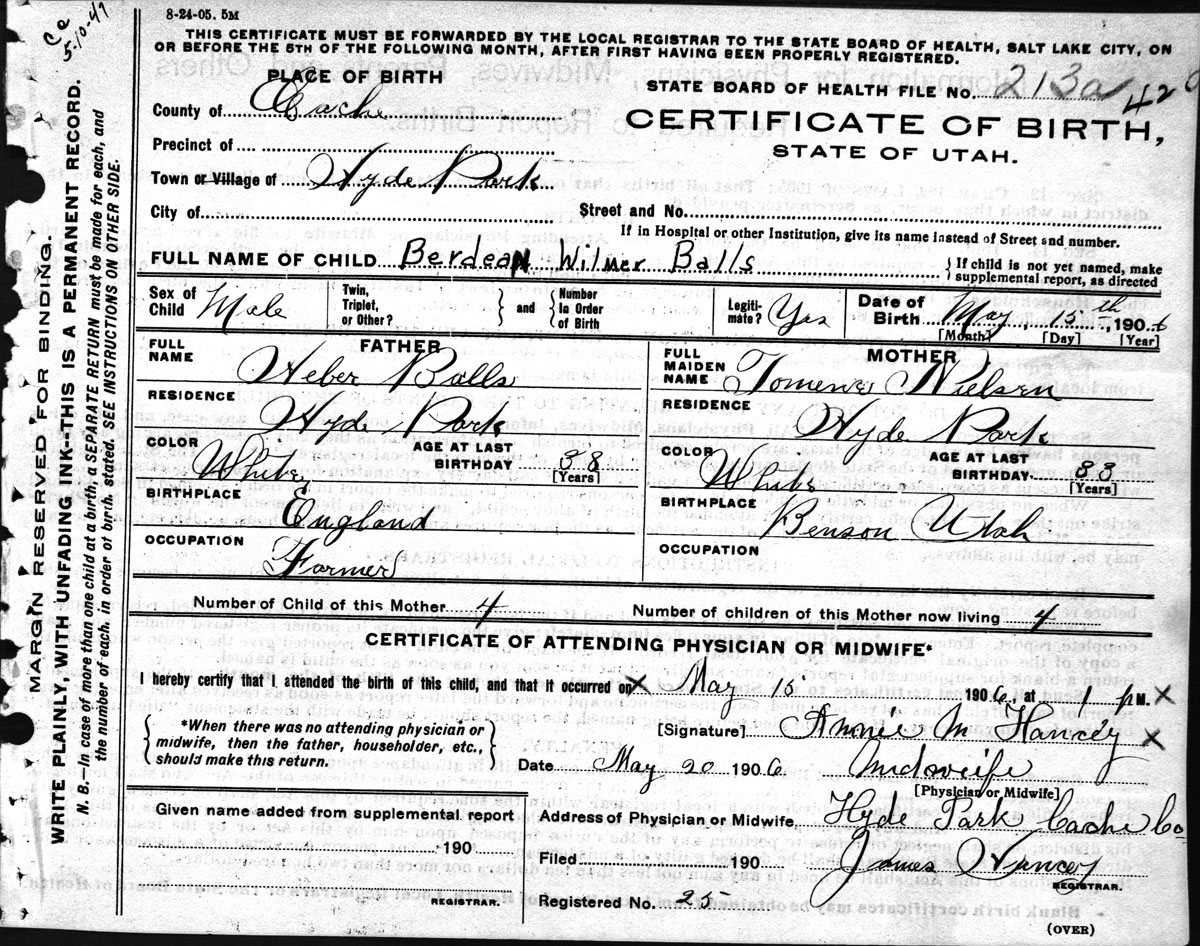 8-24-05. 5M
Ce
5-10-47
THIS CERTIFICATE MUST BE FORWARDED BY THE LOCAL REGISTRAR TO THE STATE BOARD OF HEALTH, SALT LAKE CITY, ON
OR BEFORE THE 5TH OF THE FOLLOWING MONTH, AFTER FIRST HAVING BEEN PROPERLY REGISTERED.
PLACE OF BIRTH
STATE BOARD OF HEALTH FILE No. 213a 420
County of Cache
CERTIFICATE OF BIRTH,
STATE OF UTAH.
Precinct of
Town or Village of Hyde Park
City of
Street and No.
If in Hospital or other Institution, give its name instead of Street and number.
FULL NAME OF CHILD Berdean Wilmer Balls
{ If child is not yet named, make
supplemental report, as directed
Sex of Child Male
Twin, Triplet, or Other? } and { Number In Order of Birth
Legiti-mate? Yes
Date of Birth May 15th, 1906
[Month] [Day] [Year]
FATHER
FULL NAME Heber Balls
RESIDENCE Hyde Park
COLOR White
AGE AT LAST BIRTHDAY 38
[Years]
BIRTHPLACE England
OCCUPATION Farmer
MOTHER
FULL MAIDEN NAME Tomene Nielsen
RESIDENCE Hyde Park
COLOR White
AGE AT LAST BIRTHDAY 33
[Years]
BIRTHPLACE Benson Utah
OCCUPATION
Number of Child of this Mother 4
Number of children of this Mother now living 4
CERTIFICATE OF ATTENDING PHYSICIAN OR MIDWIFE*
I hereby certify that I attended the birth of this child, and that it occurred on X May 15 1906, at 1 P M. X
{ *When there was no attending physician or
midwife, then the father, householder, etc.,
should make this return. }
[Signature] Annie M Hancey X
Date May 20 1906 Midwife
[Physician or Midwife]
Given name added from supplemental report
190
REGISTRAR.
Address of Physician or Midwife Hyde Park Cache Co
Filed 190 James Hancey
REGISTRAR.
Registered No. 25
(OVER)
MARGIN RESERVED FOR BINDING.
WRITE PLAINLY, WITH UNFADING INK--THIS IS A PERMANENT RECORD.
N. B. In case of more than one child at a birth, a SEPARATE RETURN must be made for each, and
the number of each, in order of birth, stated. SEE INSTRUCTIONS ON OTHER SIDE.